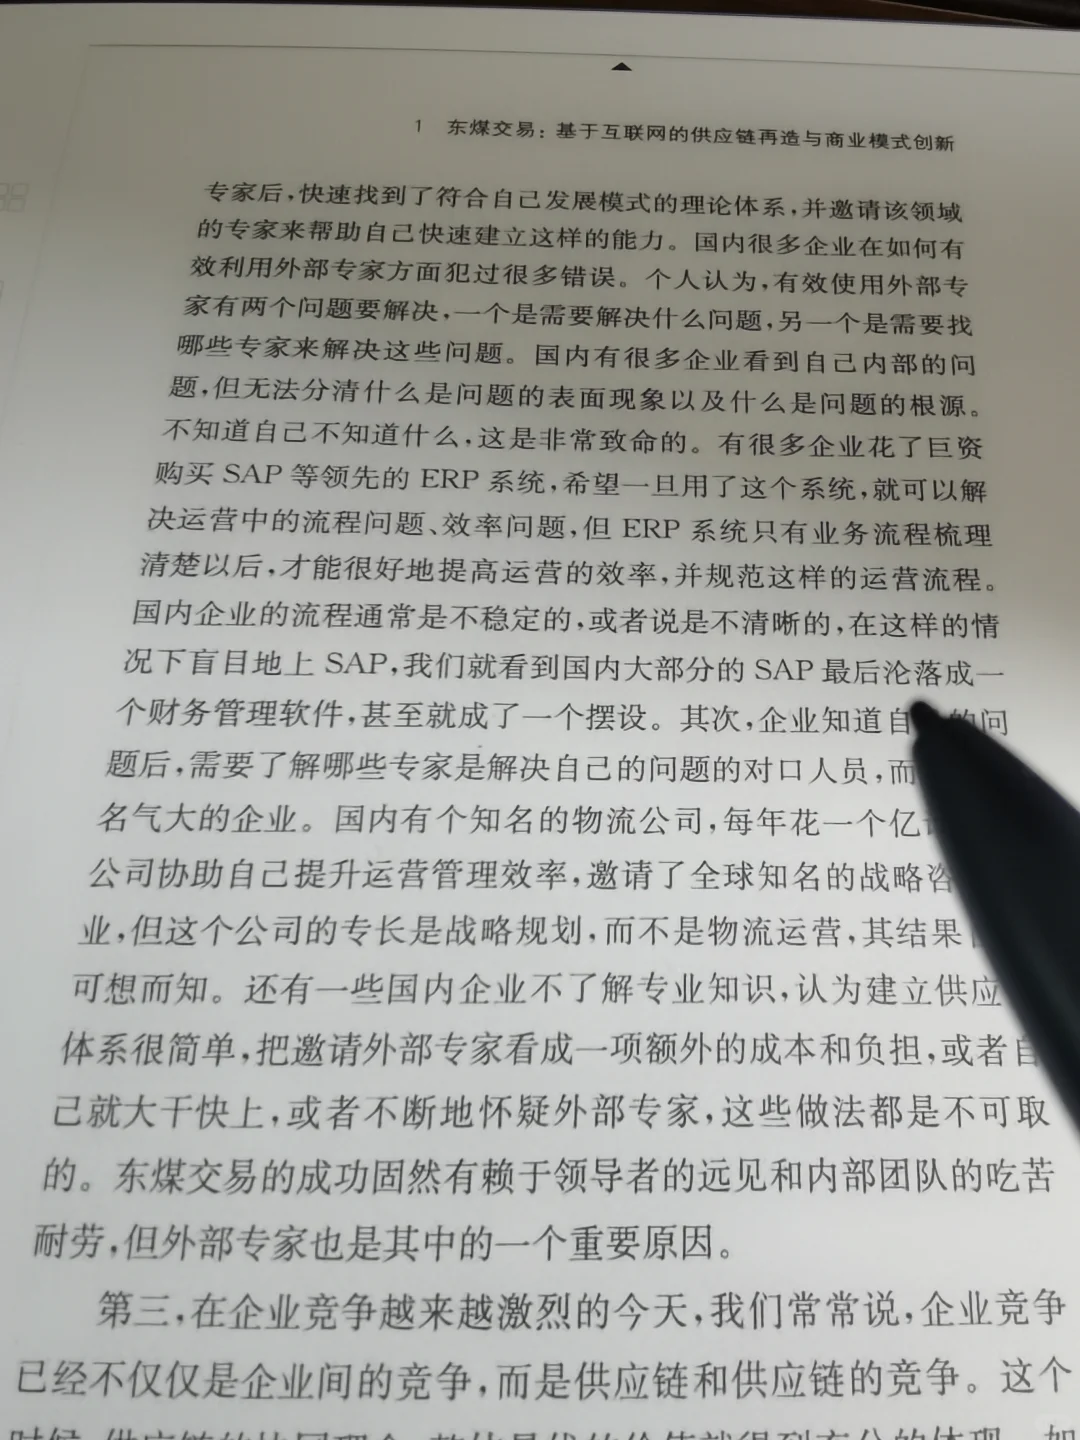 1 东煤交易：基于互联网的供应链再造与商业模式创新
专家后，快速找到了符合自己发展模式的理论体系，并邀请该领域
的专家来帮助自己快速建立这样的能力。国内很多企业在如何有
效利用外部专家方面犯过很多错误。个人认为，有效使用外部专
家有两个问题要解决，一个是需要解决什么问题，另一个是需要找
哪些专家来解决这些问题。国内有很多企业看到自己内部的问
题，但无法分清什么是问题的表面现象以及什么是问题的根源。
不知道自己不知道什么，这是非常致命的。有很多企业花了巨资
购买 SAP 等领先的 ERP 系统，希望一旦用了这个系统，就可以解
决运营中的流程问题、效率问题，但 ERP 系统只有业务流程梳理
清楚以后，才能很好地提高运营的效率，并规范这样的运营流程。
国内企业的流程通常是不稳定的，或者说是不清晰的，在这样的情
况下盲目地上 SAP，我们就看到国内大部分的 SAP 最后沦落成一
个财务管理软件，甚至就成了一个摆设。其次，企业知道自 的问
题后，需要了解哪些专家是解决自己的问题的对口人员，而
名气大的企业。国内有个知名的物流公司，每年花一个亿
公司协助自己提升运营管理效率，邀请了全球知名的战略咨
业，但这个公司的专长是战略规划，而不是物流运营，其结果
可想而知。还有一些国内企业不了解专业知识，认为建立供应
体系很简单，把邀请外部专家看成一项额外的成本和负担，或者自
己就大干快上，或者不断地怀疑外部专家，这些做法都是不可取
的。东煤交易的成功固然有赖于领导者的远见和内部团队的吃苦
耐劳，但外部专家也是其中的一个重要原因。
第三，在企业竞争越来越激烈的今天，我们常常说，企业竞争
已经不仅仅是企业间的竞争，而是供应链和供应链的竞争。这个